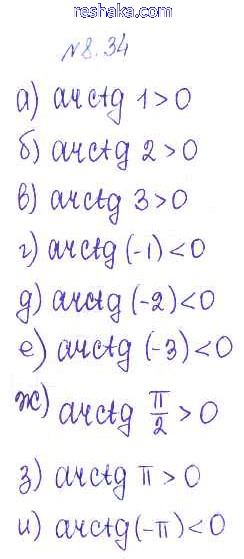 reshaka.com
№8.34
а) arctg 1 > 0
б) arctg 2 > 0
в) arctg 3 > 0
г) arctg (-1) < 0
д) arctg (-2) < 0
е) arctg (-3) < 0
ж) arctg π/2 > 0
з) arctg π > 0
и) arctg (-π) < 0